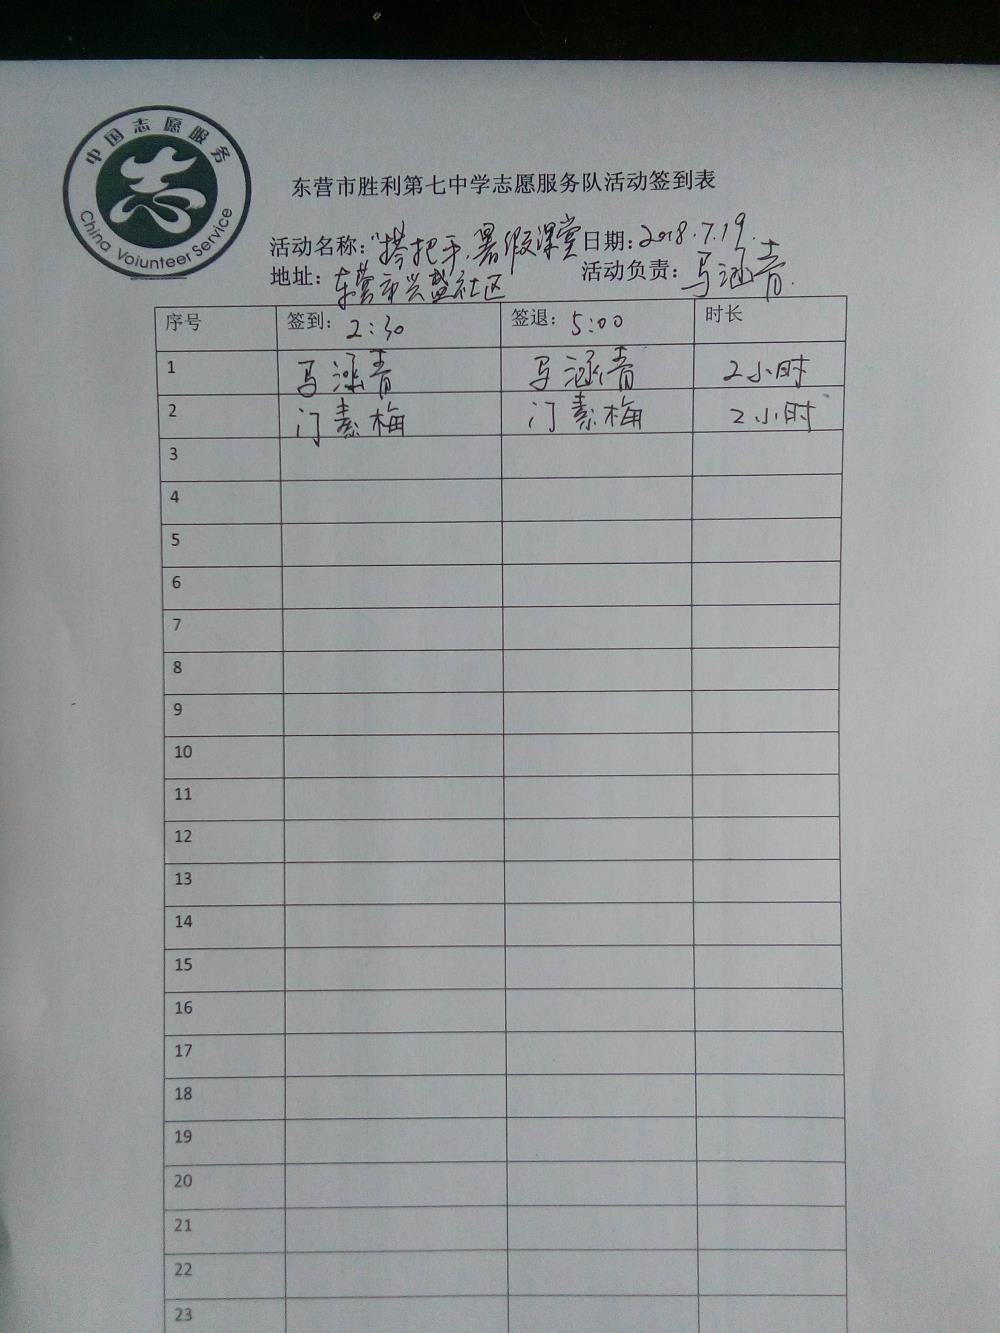 中国志愿服务
志
China Voiunteer Service
东营市胜利第七中学志愿服务队活动签到表
活动名称："搭把手.暑假课堂 日期：2018.7.19.
地址：东营市兴盐社区 活动负责：马涵青.
序号 签到：2:30 签退：5:00 时长
1 马涵青 马涵青 2小时
2 门素梅 门素梅 2小时
3
4
5
6
7
8
9
10
11
12
13
14
15
16
17
18
19
20
21
22
23